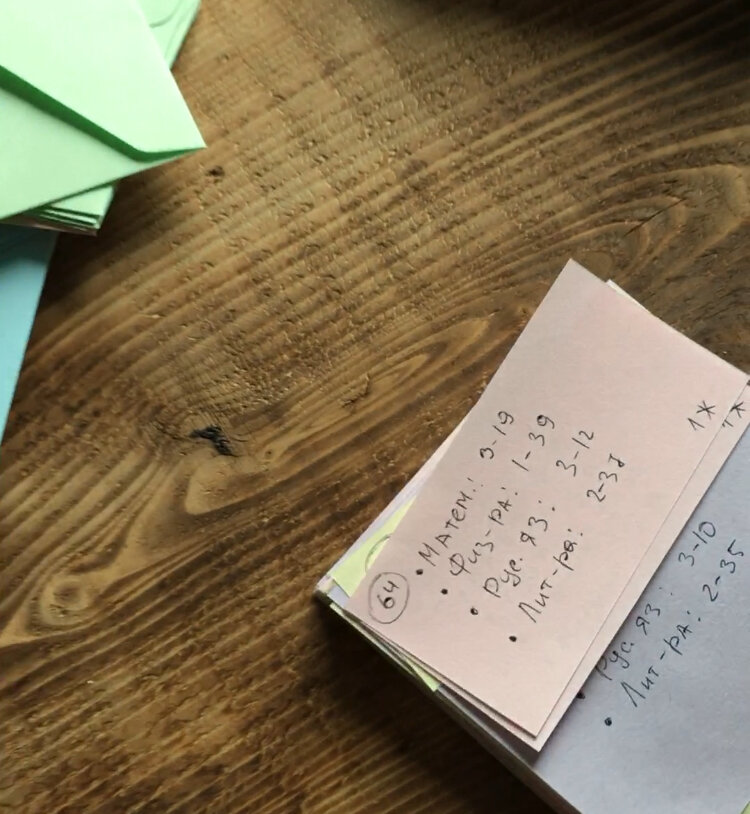 64
• Матем.: 3-19
• Физ-ра: 1-39
• Рус. яз: 3-12
• Лит-ра: 2-38
1Ж
1Ж
• Рус. яз: 3-10
• Лит-ра: 2-35